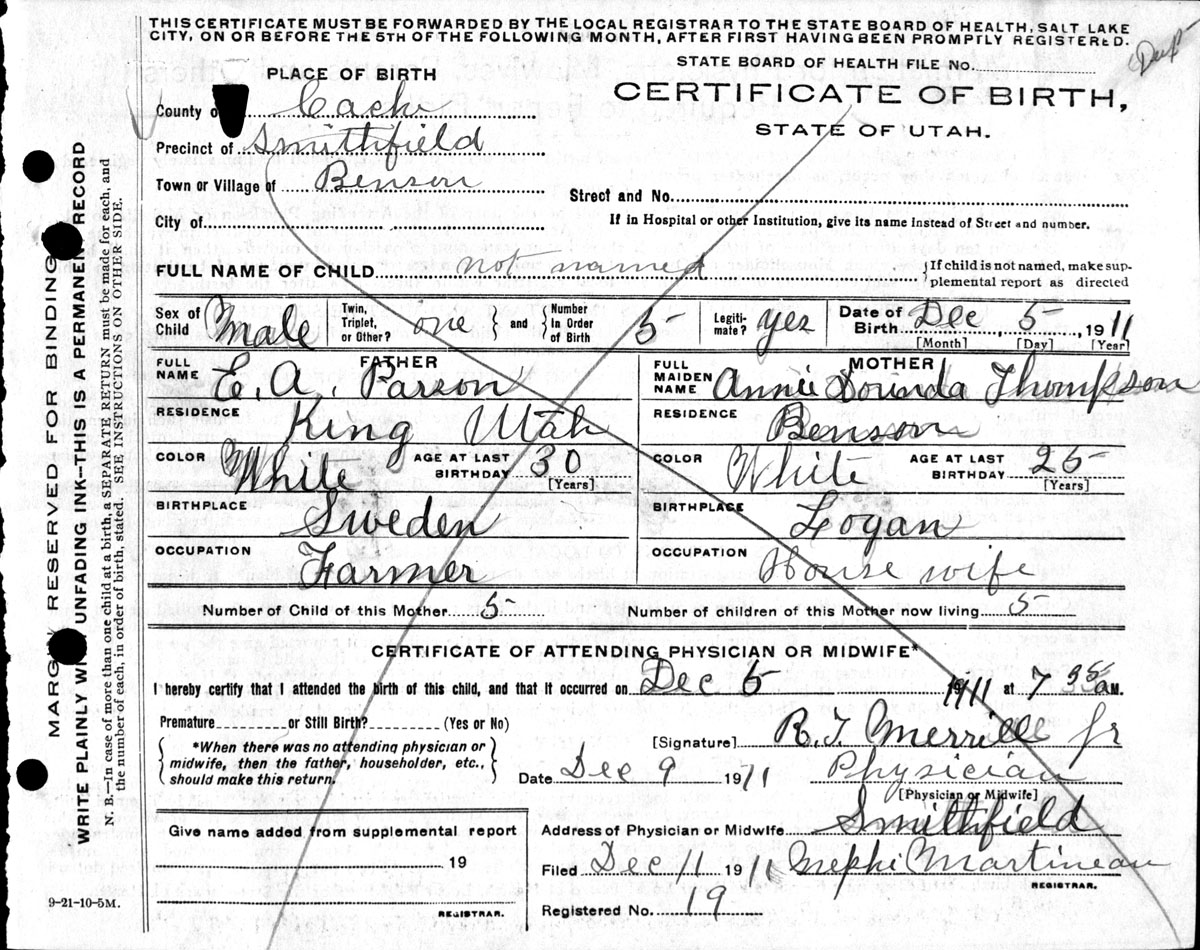 THIS CERTIFICATE MUST BE FORWARDED BY THE LOCAL REGISTRAR TO THE STATE BOARD OF HEALTH, SALT LAKE
CITY, ON OR BEFORE THE 5TH OF THE FOLLOWING MONTH, AFTER FIRST HAVING BEEN PROMPTLY REGISTERED.
Dup
STATE BOARD OF HEALTH FILE No.
PLACE OF BIRTH
CERTIFICATE OF BIRTH,
STATE OF UTAH.
County of Cache
Precinct of Smithfield
Town or Village of Benson
Street and No.
City of
If in Hospital or other Institution, give its name instead of Street and number.
FULL NAME OF CHILD not named {If child is not named, make sup-
plemental report as directed
Sex of Child Male Twin, Triplet, or Other? one } and { Number In Order of Birth 5 Legiti- mate? yes Date of Birth Dec 5, 1911
[Month] [Day] [Year]
FATHER MOTHER
FULL NAME E. A. Parson FULL MAIDEN NAME Annie Dorinda Thompson
RESIDENCE King Utah RESIDENCE Benson
COLOR White AGE AT LAST BIRTHDAY 30 [Years] COLOR White AGE AT LAST BIRTHDAY 25 [Years]
BIRTHPLACE Sweden BIRTHPLACE Logan
OCCUPATION Farmer OCCUPATION House wife
Number of Child of this Mother 5 Number of children of this Mother now living 5
CERTIFICATE OF ATTENDING PHYSICIAN OR MIDWIFE*
I hereby certify that I attended the birth of this child, and that it occurred on Dec 5 1911 at 7 AM.
Premature or Still Birth? (Yes or No)
[Signature] R. T. Merrill Jr
{ *When there was no attending physician or
midwife, then the father, householder, etc.,
should make this return. }
Date Dec 9 1911 Physician
[Physician or Midwife]
Give name added from supplemental report
19
REGISTRAR.
Address of Physician or Midwife Smithfield
Filed Dec 11 1911 Nephi Martineau
REGISTRAR.
Registered No. 19
9-21-10-5M.
MARGIN RESERVED FOR BINDING
WRITE PLAINLY WITH UNFADING INK—THIS IS A PERMANENT RECORD
N. B.—In case of more than one child at a birth, a SEPARATE RETURN must be made for each, and
the number of each, in order of birth, stated. SEE INSTRUCTIONS ON OTHER SIDE.